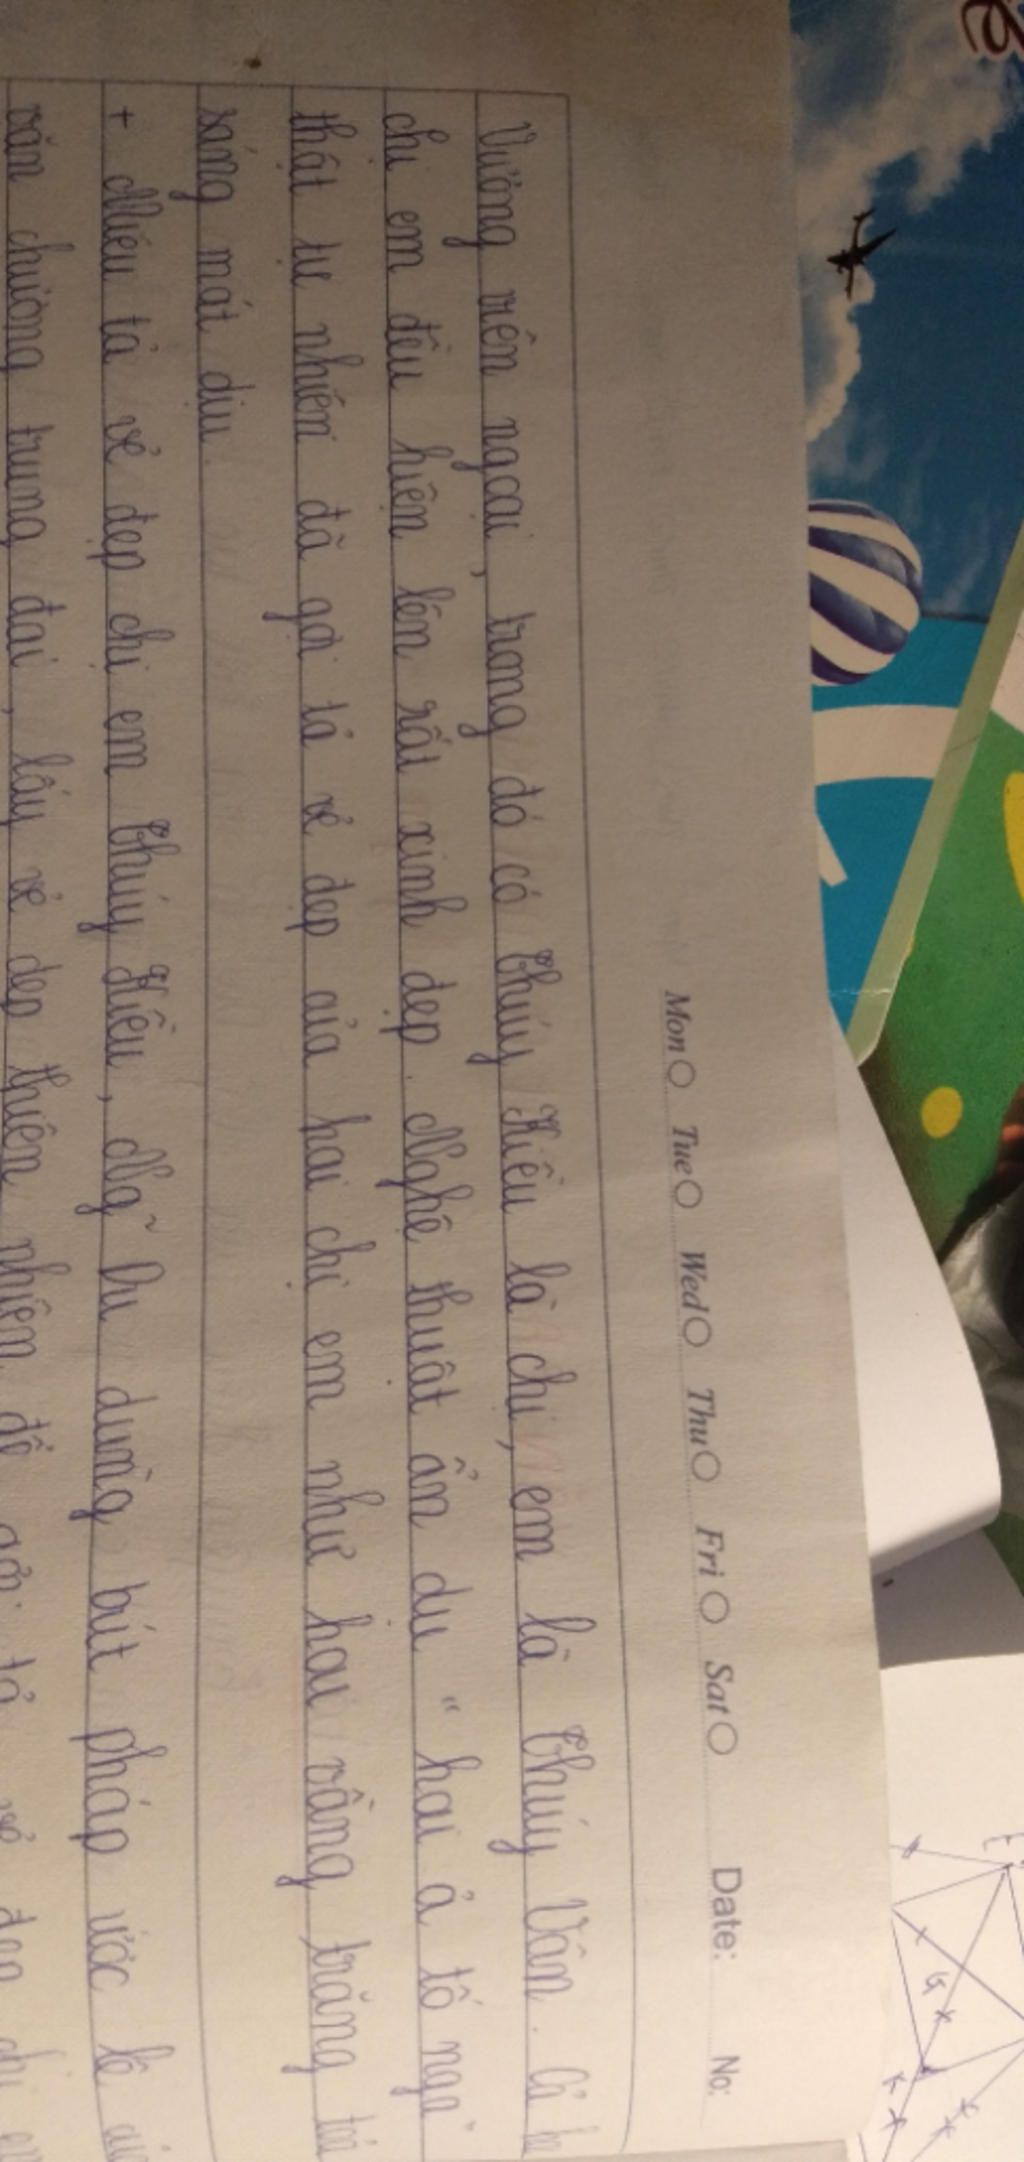 Mon Tue Wed Thu Fri Sat Date: No:
Vương viên ngoại, trong đó có Thúy Kiều là chị, em là Thúy Vân. Cả
chị em đều hiện lên rất xinh đẹp. Nghệ thuật ẩn dụ " hai ả tố nga"
thật tự nhiên đã gợi tả vẻ đẹp của hai chị em như hai vầng trăng
sáng mát dịu.
+ Miêu tả vẻ đẹp chị em Thúy Kiều, Ng~ Du dùng bút pháp ước lệ
văn chương trung đại, lấy vẻ đẹp thiên nhiên để gợi tả vẻ đẹp chị